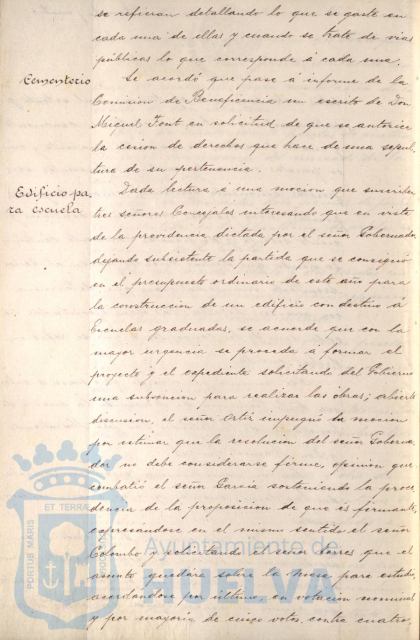 se refieran detallando lo que se gaste en
cada una de ellas y cuando se trate de vias
públicas lo que corresponde á cada una.
Cementerio
Se acordó que pase á informe de la
Comision de Beneficencia un escrito de Don
Miguel Font en solicitud de que se autorice
la cesion de derechos que hace de una sepul-
tura de su pertenencia.
Edificio pa-
ra escuela
Dada lectura á una mocion que suscriben
tres señores Concejales interesando que en vista
de la providencia dictada por el señor Gobernador
dejando subsistente la partida que se consignó
en el presupuesto ordinario de este año para
la construccion de un edificio con destino á
Escuelas graduadas, se acuerde que con la
mayor urgencia se proceda á formar el
proyecto y el expediente solicitando del Gobierno
una subvencion para realizar las obras; abierta
discusion, el señor Ortiz impugnó la mocion
por estimar que la resolucion del señor Goberna-
dor no debe considerarse firme, opinion que
combatió el señor García sosteniendo la proce-
dencia de la proposicion de que és firmante,
expresándose en el mismo sentido el señor
Colombo y solicitando el señor que el
asunto quedára sobre la mesa para estudio
acordándose por último, en votacion nominal
y por mayoria de cinco votos, contra cuatro,
PORTUS MARIS
ET TERRAE
Ayuntamiento de
HUELVA